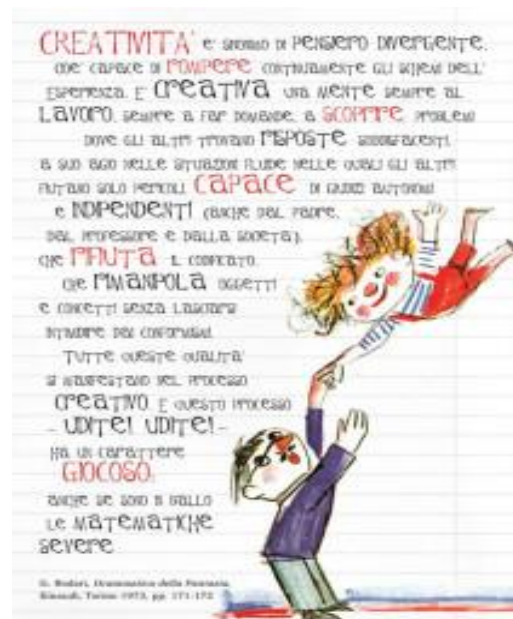 CREATIVITA' E' SINONIMO DI PENSIERO DIVERGENTE,
CIOE' CAPACE DI ROMPERE CONTINUAMENTE GLI SCHEMI DELL'
ESPERIENZA. E' CREATIVA UNA MENTE SEMPRE AL
LAVORO, SEMPRE A FAR DOMANDE, A SCOPRIRE PROBLEMI
DOVE GLI ALTRI TROVANO RISPOSTE SODDISFACENTI,
A SUO AGIO NELLE SITUAZIONI FLUIDE NELLE QUALI GLI ALTRI
FIUTANO SOLO PERICOLI, CAPACE DI GIUDIZI AUTONOMI
E INDIPENDENTI (ANCHE DAL PADRE,
DAL PROFESSORE E DALLA SOCIETA'),
CHE RIFIUTA IL CODIFICATO,
CHE RIMANIPOLA OGGETTI
E CONCETTI SENZA LASCIARSI
INTIMIDIRE DAI CONFORMISMI.
TUTTE QUESTE QUALITA'
SI MANIFESTANO NEL PROCESSO
CREATIVO. E QUESTO PROCESSO
- UDITE! UDITE! -
HA UN CARATTERE
GIOCOSO:
ANCHE SE SONO IN BALLO
LE MATEMATICHE
SEVERE
G. Rodari, Grammatica della Fantasia,
Einaudi, Torino 1973, pp. 171-172